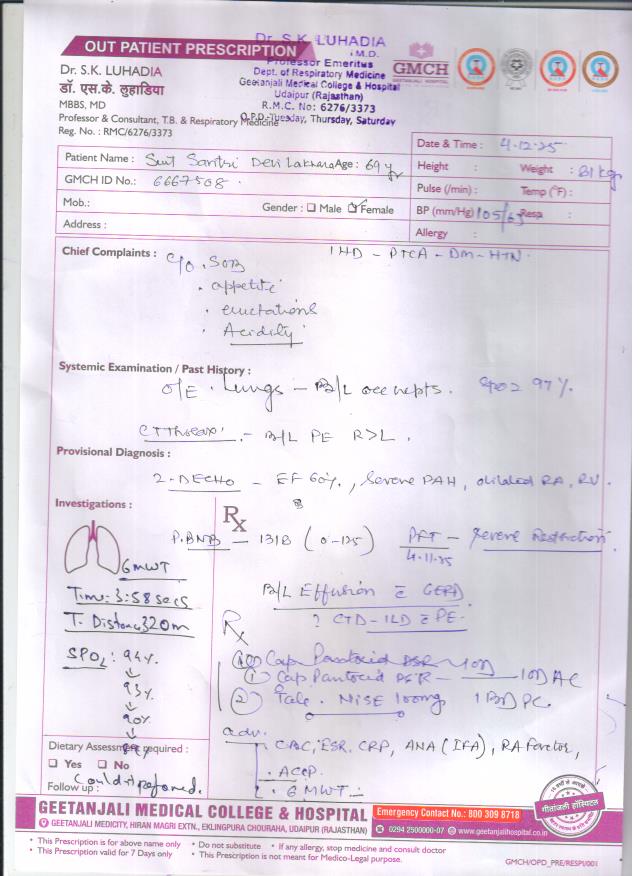 OUT PATIENT PRESCRIPTION
Dr. S.K. LUHADIA
M.D.
Professor Emeritus
Dept. of Respiratory Medicine
Geetanjali Medical College & Hospital
Udaipur (Rajasthan)
R.M.C. No: 6276/3373
O.P.D.-Tuesday, Thursday, Saturday
GMCH
GEETANJALI HOSPITAL
Dr. S.K. LUHADIA
डॉ. एस.के. लुहाडिया
MBBS, MD
Professor & Consultant, T.B. & Respiratory Medicine
Reg. No. : RMC/6276/3373
Date & Time : 4.12.25
Patient Name : Smt Santri Devi Lakhara Age : 69 yr
Height : Weight : 81 kg
GMCH ID No.: 6667508
Pulse (/min) : Temp (°F) :
Mob.: Gender : Male Female
BP (mm/Hg) 105/63 Resp :
Address :
Allergy :
Chief Complaints : c/o . SOB IHD - PTCA - DM - HTN
. appetite
. eructations
. Acidity
Systemic Examination / Past History :
O/E . Lungs - B/L occ crepts. SPO2 97%.
CT Thorax - B/L PE R>L.
Provisional Diagnosis :
2-DECHO - EF 60%, Severe PAH, dilated RA, RV.
Investigations :
Rx
P.BNB - 1318 (0-125) PFT - Severe Restriction
4.11.25
6MWT
Time: 3:58 secs
T. Distance 320m
SPO2 : 94%
93%
90%
B/L Effusion c̄ GERD
? CTD - ILD c̄ PE.
Rx
① Cap Pantocid DSR 10D
① Cap Pantocid DSR - 10D AC
② Tab. NISE 100mg 1BD PC.
adv.
CBC, ESR, CRP, ANA (IFA), RA Factor,
. ACCP
. 6MWT
Dietary Assessment required :
Yes No
Follow up :
GEETANJALI MEDICAL COLLEGE & HOSPITAL
GEETANJALI MEDICITY, HIRAN MAGRI EXTN., EKLINGPURA CHOURAHA, UDAIPUR (RAJASTHAN)
Emergency Contact No.: 800 309 8718
0294 2500000-07 www.geetanjalihospital.co.in
गीतांजली हॉस्पिटल
• This Prescription is for above name only • Do not substitute • If any allergy, stop medicine and consult doctor
• This Prescription valid for 7 Days only • This Prescription is not meant for Medico-Legal purpose.
GMCH/OPD_PRE/RESPI/001